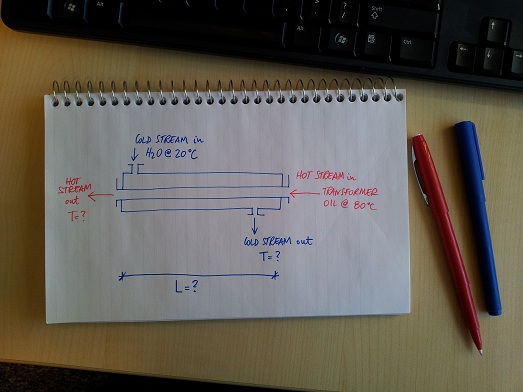 COLD STREAM in
H2O @ 20°C
HOT
STREAM
out
T=?
HOT STREAM in
TRANSFORMER
OIL @ 80°C
COLD STREAM out
T=?
L=?
Shift
Ctrl